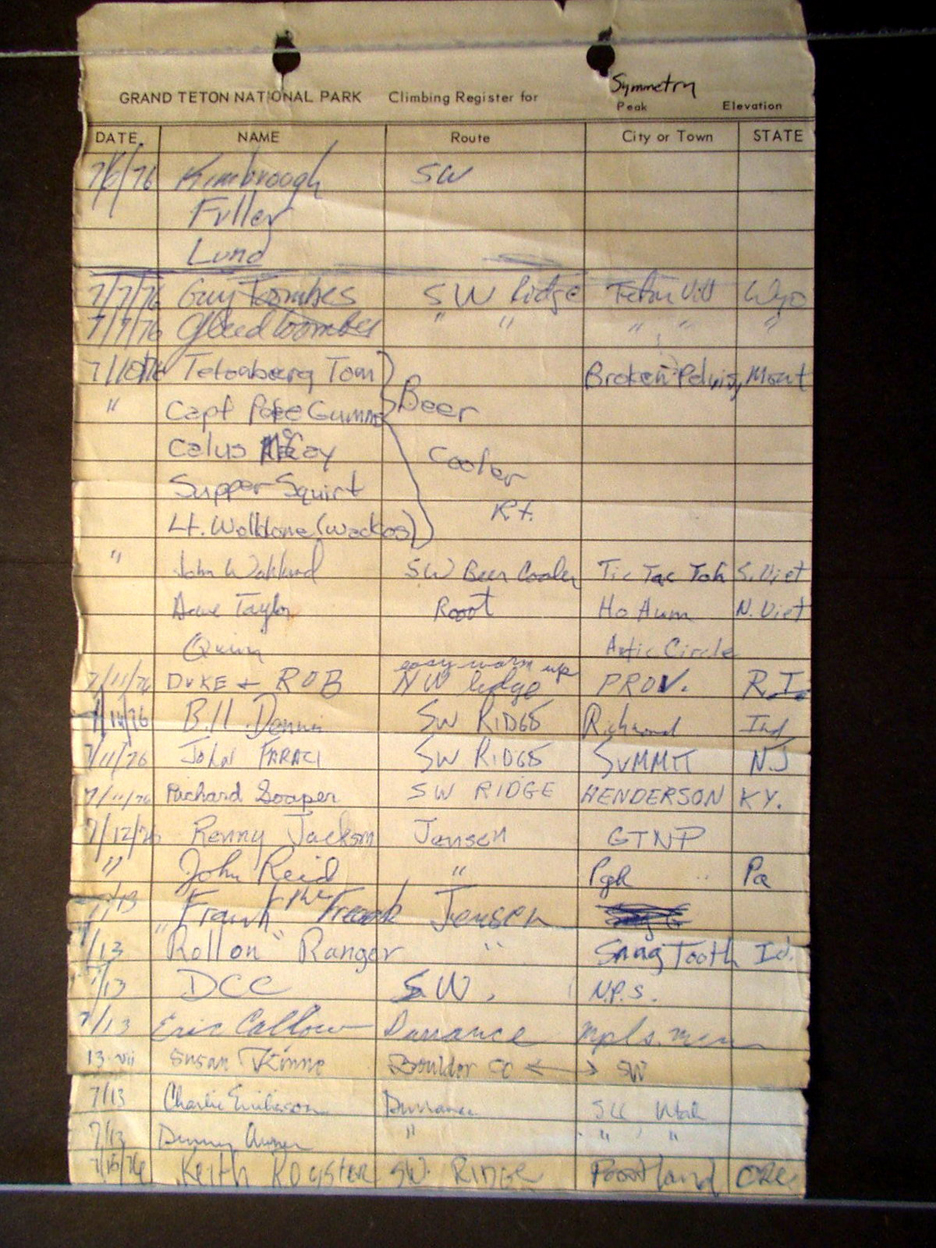 Symmetry
GRAND TETON NATIONAL PARK Climbing Register for Peak Elevation
DATE NAME Route City or Town STATE
7/6/76 Kimbrough SW
Fuller
Lund
7/7/76 Guy Toombes SW Ridge Teton Vill Wyo
7/7/76 Toombes " " " " "
7/10/76 Tetonbaerg Tom Broken Pelvis, Mont
" Capt Beer
Calus McCoy Cooler
Supper Squirt
Lt. Walldone (wackos) Rt.
" John SW Beer Cooler Tic Tac Toh S. Viet
Taylor Root Ho Aum N. Viet
Quinn Artic Circle
easy warm up
7/11/76 DUKE + ROB NW ledge PROV. R.I.
/76 Bill Dennis SW RIDGE Richmond Ind
7/11/76 John FARACI SW RIDGE SUMMIT NJ
7/11/76 Richard Soaper SW RIDGE HENDERSON KY.
7/12/76 Renny Jackson Jensen GTNP
" John Reid " Pgh Pa
7/13 "Frank the Freak Jensen
7/13 Roll on" Ranger " Snag Tooth Id.
7/13 DCC SW. N.P.S.
7/13 Eric Callow Durrance mpls. minn
13 vii Susan Kinne Bouldor CO ↔ SW
7/13 Charlie Erickson Durrance SLC Utah
7/13 " " "
7/15/76 Keith Royster SW. RIDGE Poortland ORE.